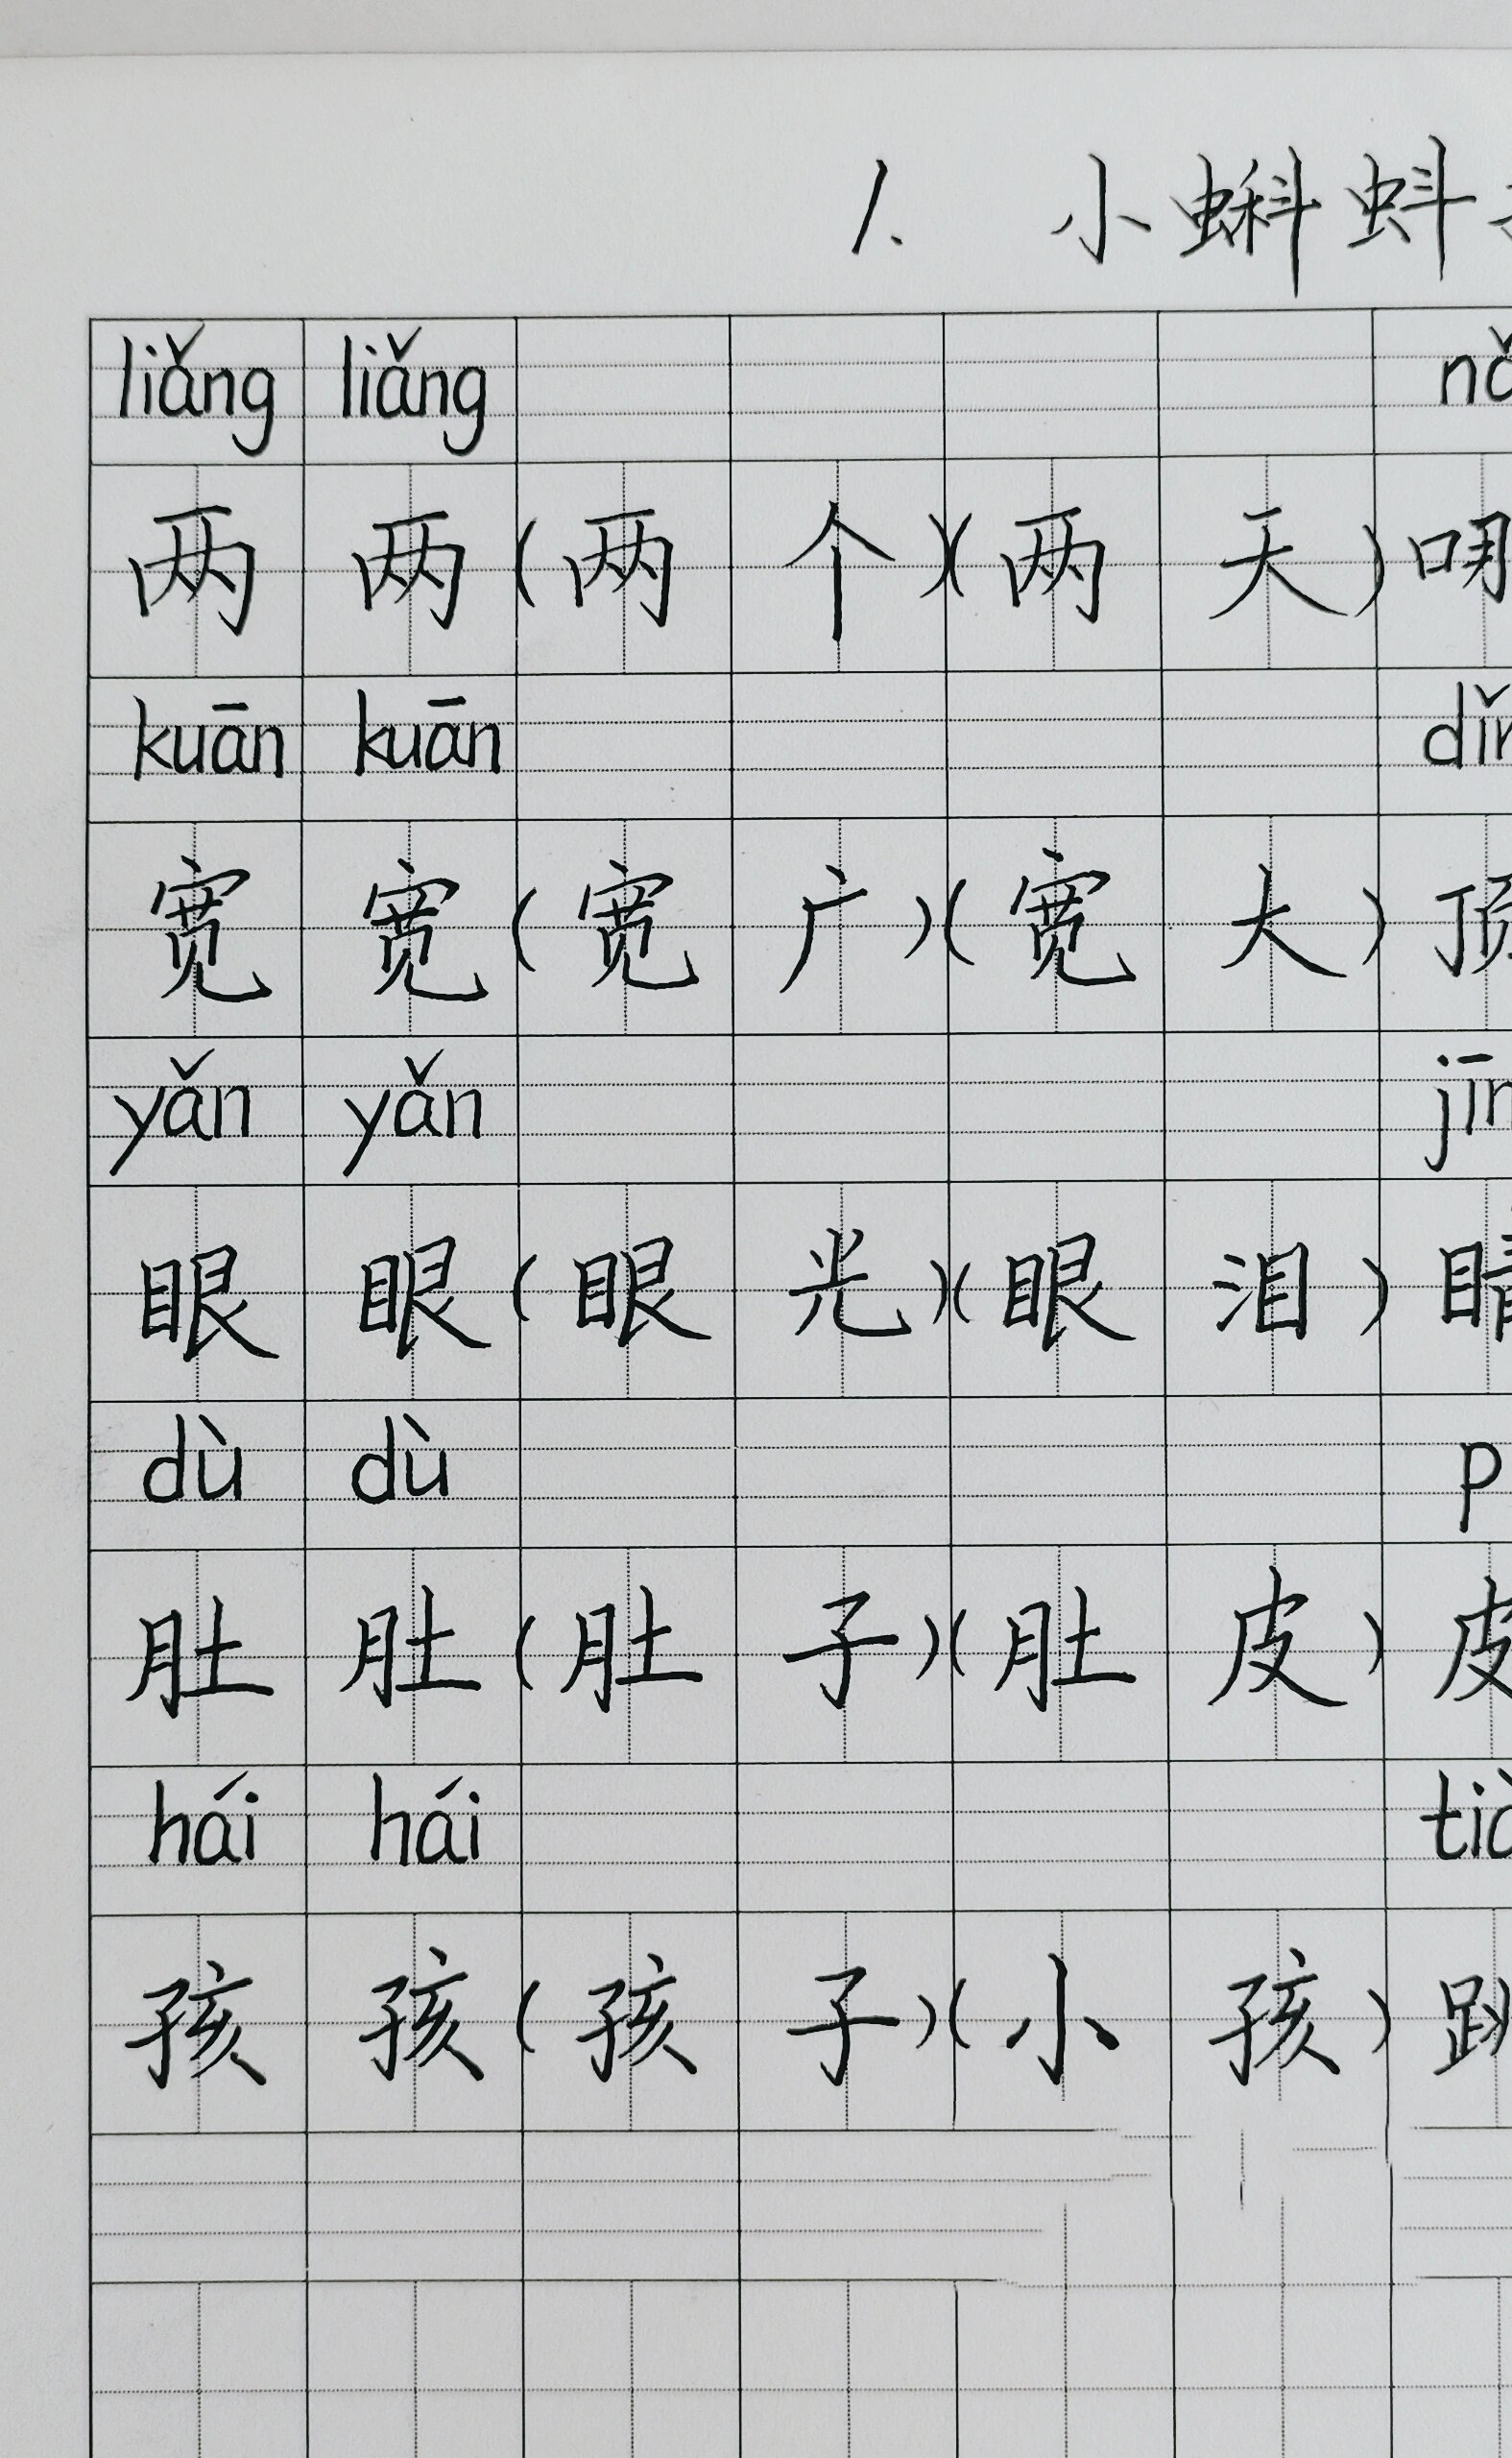 1. 小蝌蚪
liǎng liǎng
两 两 (两 个)(两 天)
kuān kuān
宽 宽 (宽 广)(宽 大) 顶
yǎn yǎn
眼 眼 (眼 光)(眼 泪) 睛
dù dù p
肚 肚 (肚 子)(肚 皮) 皮
hái hái
孩 孩 (孩 子)(小 孩) 跳